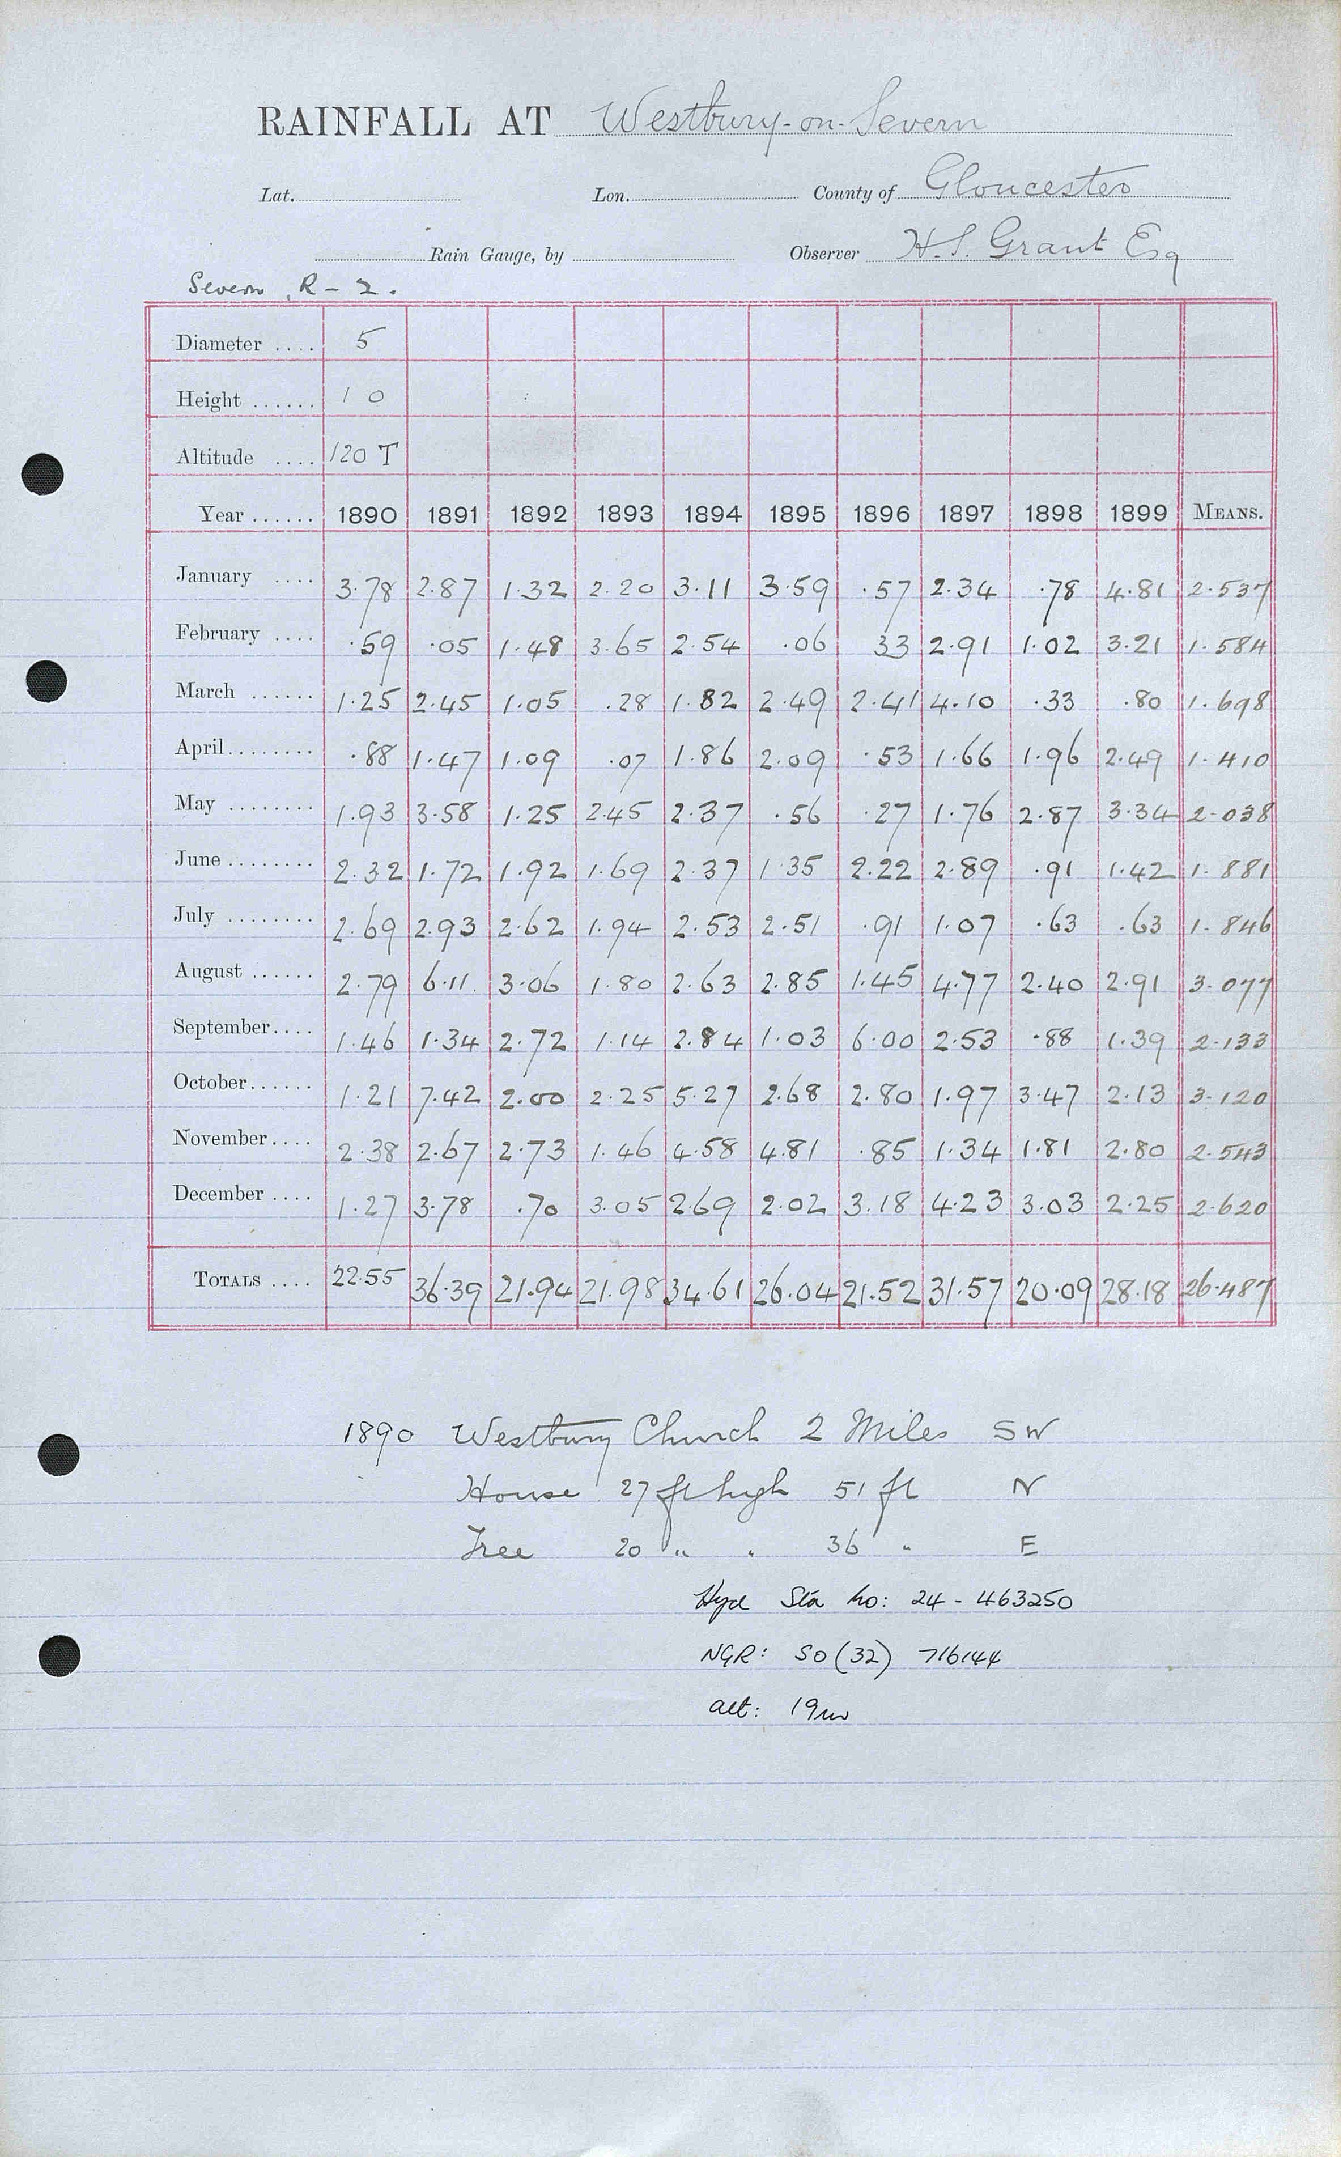 RAINFALL AT Westbury-on-Severn
Lat. Lon. County of Gloucester
Rain Gauge, by Observer H.S. Grant Esq
Severn R - 2.
Diameter .... 5
Height ...... 1 0
Altitude .... 120 T
Year ...... 1890 1891 1892 1893 1894 1895 1896 1897 1898 1899 MEANS.
January .... 3.78 2.87 1.32 2.20 3.11 3.59 .57 2.34 .78 4.81 2.537
February .... .59 .05 1.48 3.65 2.54 .06 33 2.91 1.02 3.21 1.584
March ...... 1.25 2.45 1.05 .28 1.82 2.49 2.41 4.10 .33 .80 1.698
April........ .88 1.47 1.09 .07 1.86 2.09 .53 1.66 1.96 2.49 1.410
May ........ 1.93 3.58 1.25 2.45 2.37 .56 .27 1.76 2.87 3.34 2.038
June ........ 2.32 1.72 1.92 1.69 2.37 1.35 2.22 2.89 .91 1.42 1.881
July ........ 2.69 2.93 2.62 1.94 2.53 2.51 .91 1.07 .63 .63 1.846
August ...... 2.79 6.11 3.06 1.80 2.63 2.85 1.45 4.77 2.40 2.91 3.077
September.... 1.46 1.34 2.72 1.14 2.84 1.03 6.00 2.53 .88 1.39 2.133
October...... 1.21 7.42 2.00 2.25 5.27 2.68 2.80 1.97 3.47 2.13 3.120
November.... 2.38 2.67 2.73 1.46 4.58 4.81 .85 1.34 1.81 2.80 2.543
December .... 1.27 3.78 .70 3.05 2.69 2.02 3.18 4.23 3.03 2.25 2.620
TOTALS .... 22.55 36.39 21.94 21.98 34.61 26.04 21.52 31.57 20.09 28.18 26.487
1890 Westbury Church 2 Miles SW
House 27 ft high 51 ft N
Tree 20 " " 36 " E
Hyd Sta no: 24 - 463250
NGR: SO (32) 716144
alt: 19m